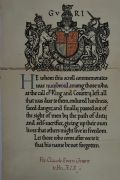 G V R I
HE whom this scroll commemorates
was numbered among those who,
at the call of King and Country, left all
that was dear to them, endured hardness,
faced danger, and finally passed out of
the sight of men by the path of duty
and self-sacrifice, giving up their own
lives that others might live in freedom.
Let those who come after see to it
that his name be not forgotten.